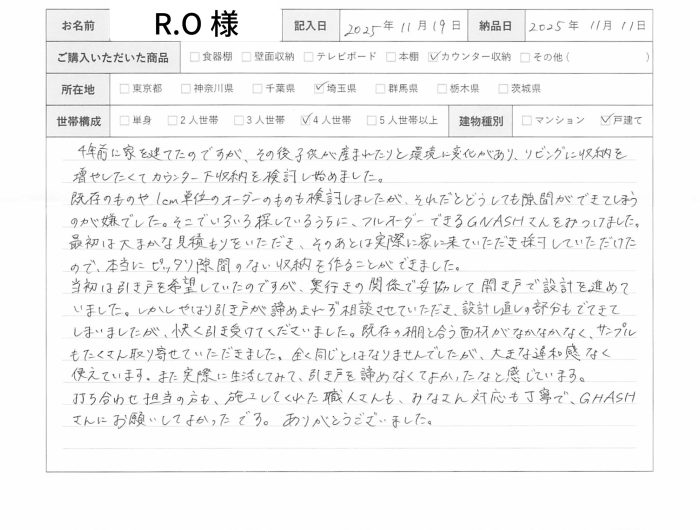 お名前 R.O 様 記入日 2025年 11月 19日 納品日 2025年 11月 11日
ご購入いただいた商品 □食器棚 □壁面収納 □テレビボード □本棚 ☑カウンター収納 □その他 ( )
所在地 □東京都 □神奈川県 □千葉県 ☑埼玉県 □群馬県 □栃木県 □茨城県
世帯構成 □単身 □2人世帯 □3人世帯 ☑4人世帯 □5人世帯以上 建物種別 □マンション ☑戸建て
4年前に家を建てたのですが、その後子供が産まれたりと環境に変化があり、リビングに収納を
増やしたくてカウンター下収納を検討し始めました。
既存のものや1cm単位のオーダーのものも検討しましたが、それだとどうしても隙間ができてしまう
のが嫌でした。そこでいろいろ探しているうちに、フルオーダーできるGNASHさんをみつけました。
最初は大まかな見積もりをいただき、そのあとは実際に家に来ていただき採寸していただけた
ので、本当にピッタリ隙間のない収納を作ることができました。
当初は引き戸を希望していたのですが、奥行きの関係で妥協して開き戸で設計を進めて
いました。しかしやはり引き戸が諦めきれず相談させていただき、設計し直しの部分もでてきて
しまいましたが、快く引き受けてくださいました。既存の棚と合う面材がなかなかなく、サンプル
もたくさん取り寄せていただきました。全く同じとはなりませんでしたが、大きな違和感なく
使えています。また実際に生活してみて、引き戸を諦めなくてよかったなと感じています。
打ち合わせ担当の方も、施工してくれた職人さんも、みなさん対応も丁寧で、GHASH
さんにお願いしてよかったです。ありがとうございました。